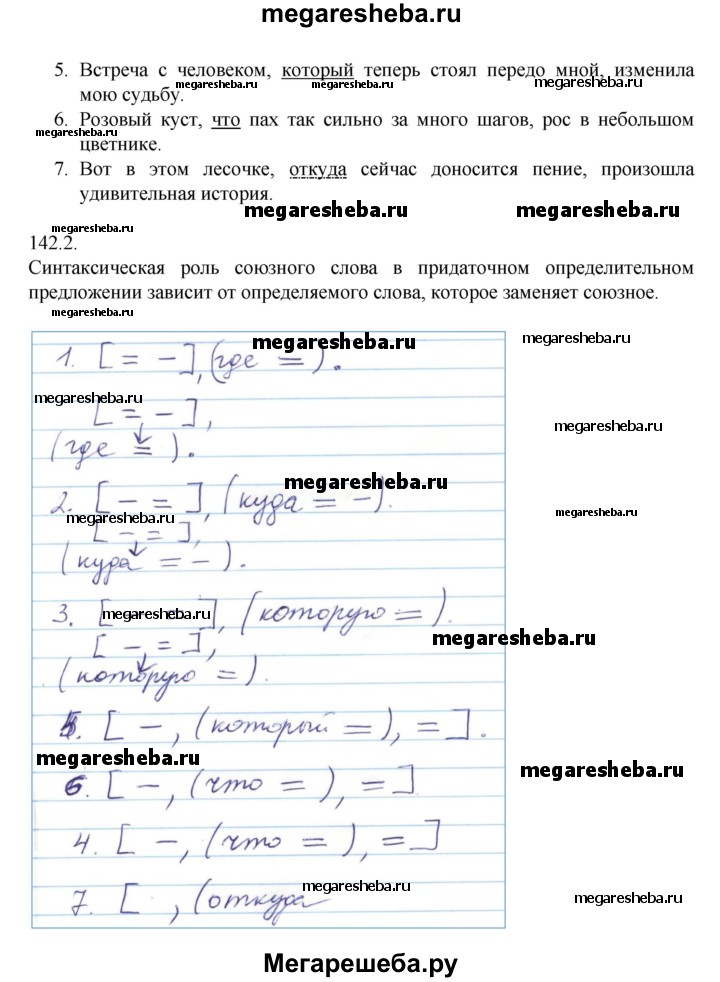 megaresheba.ru
5. Встреча с человеком, который теперь стоял передо мной, изменила
megaresheba.ru megaresheba.ru megaresheba.ru
мою судьбу.
6. Розовый куст, что пах так сильно за много шагов, рос в небольшом
megaresheba.ru
цветнике.
7. Вот в этом лесочке, откуда сейчас доносится пение, произошла
удивительная история.
megaresheba.ru megaresheba.ru
megaresheba.ru
142.2.
Синтаксическая роль союзного слова в придаточном определительном
предложении зависит от определяемого слова, которое заменяет союзное.
megaresheba.ru
megaresheba.ru megaresheba.ru
1. [= –], (где =).
megaresheba.ru
[= –],
megaresheba.ru
(где =).
megaresheba.ru
2. [– =], (куда = –).
megaresheba.ru megaresheba.ru
[– =],
(куда = –).
3. [megaresheba.ru], (которую =).
megaresheba.ru
[– =],
(которую =).
5. [–, (который =), =].
megaresheba.ru
megaresheba.ru
6. [–, (что =), =]
4. [–, (что =), =]
megaresheba.ru
7. [ , (откуда
megaresheba.ru
Мегарешеба.ру